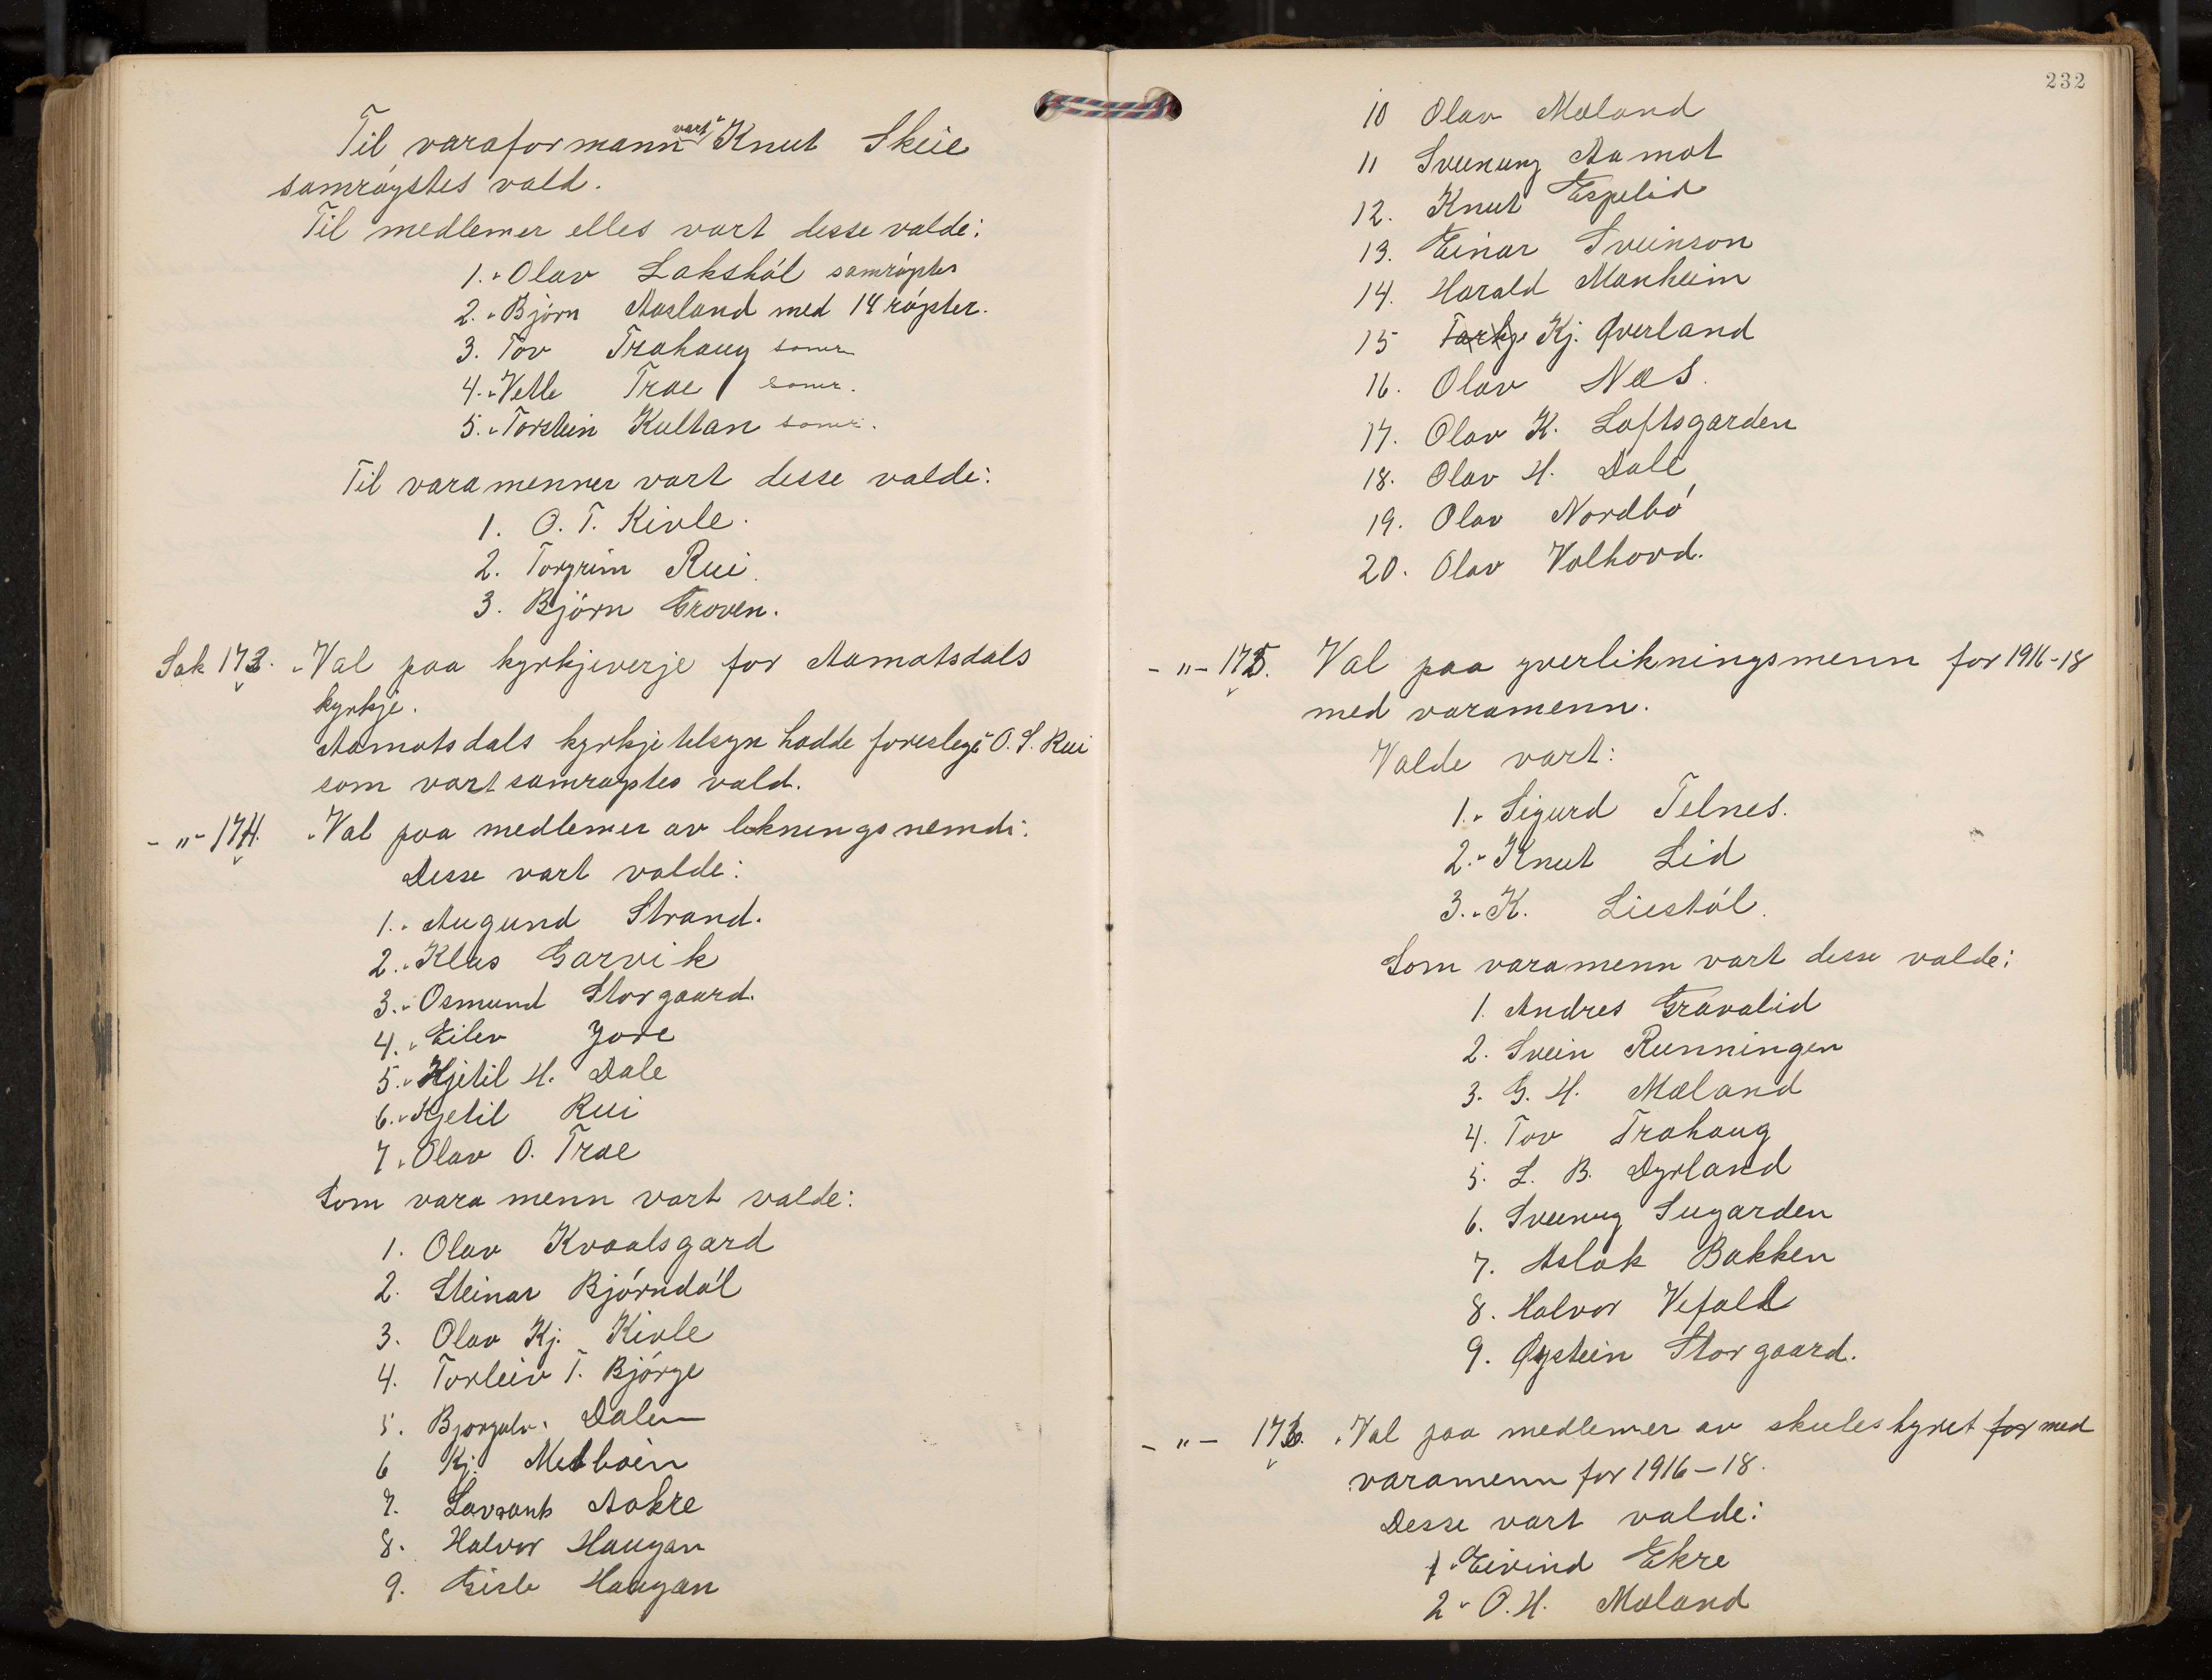 Til varaformann vart Knut Skeie
samrøystes vald.
Til medlemer elles vart desse valde:
1. Olav Lakshól samróystes
2. Bjórn Aasland med 14 róyster.
3. Tov Trahaug samr
4. Vetle Trae samr.
5. Torstein Kultan samr.
Til varamenner vart desse valde:
1. O. T. Kivle.
2. Torgrim Rui
3. Bjórn Groven.
Sak 173. Val paa kyrkjeverje for Aamotsdals
kyrkje.
Aamotsdals kyrkjetilsyn hadde foreslege O. S. Rui
som vart samrøystes vald.
- " - 174. Val paa medlemer av likningsnemdi:
Desse vart valde:
1. Augund Strand.
2. Klas Garvik
3. Osmund Storgaard.
4. Eilev Jore
5. Kjetil H. Dale
6. Kjetil Rui
7. Olav O. Trae
Som vara menn vart valde:
1. Olav Kvaalsgard
2. Steinar Bjórndal
3. Olav Kj. Kivle
4. Torleiv T. Bjórge
5. Bjorgulv. Dalen
6 Kj. Melboin
7. Lavrants Aakre
8. Halvor Haugan
9. Gisle Haugan
232
10 Olav Mæland
11 Sveinung Aamot
12. Knut Espelid
13. Einar Sveinson
14. Harald Manheim
15 Tarkje Kj. Øverland
16. Olav Næs.
17. Olav K. Loftsgarden
18. Olav H. Dale
19. Olav Nordbó
20. Olav Valhovd.
- " - 175. Val paa yverlikningsmenn for 1916-18
med varamenn.
Valde vart:
1. Sigurd Telnes.
2. Knut Lid
3. K. Liestól.
Som varamenn vart desse valde:
1. Andres Gravalid
2. Svein Runningen
3. G. H. Mæland
4. Tov Trahaug
5. L. B. Dyrland
6. Sveinung Sugarden
7. Aslak Bakken
8. Halvor Vefald
9. Øystein Storgaard.
- " - 176. Val paa medlemer av skulestyret for med
varamenn for 1916-18.
Desse vart valde:
1 Eivind Ekre
2 O. H. Mæland